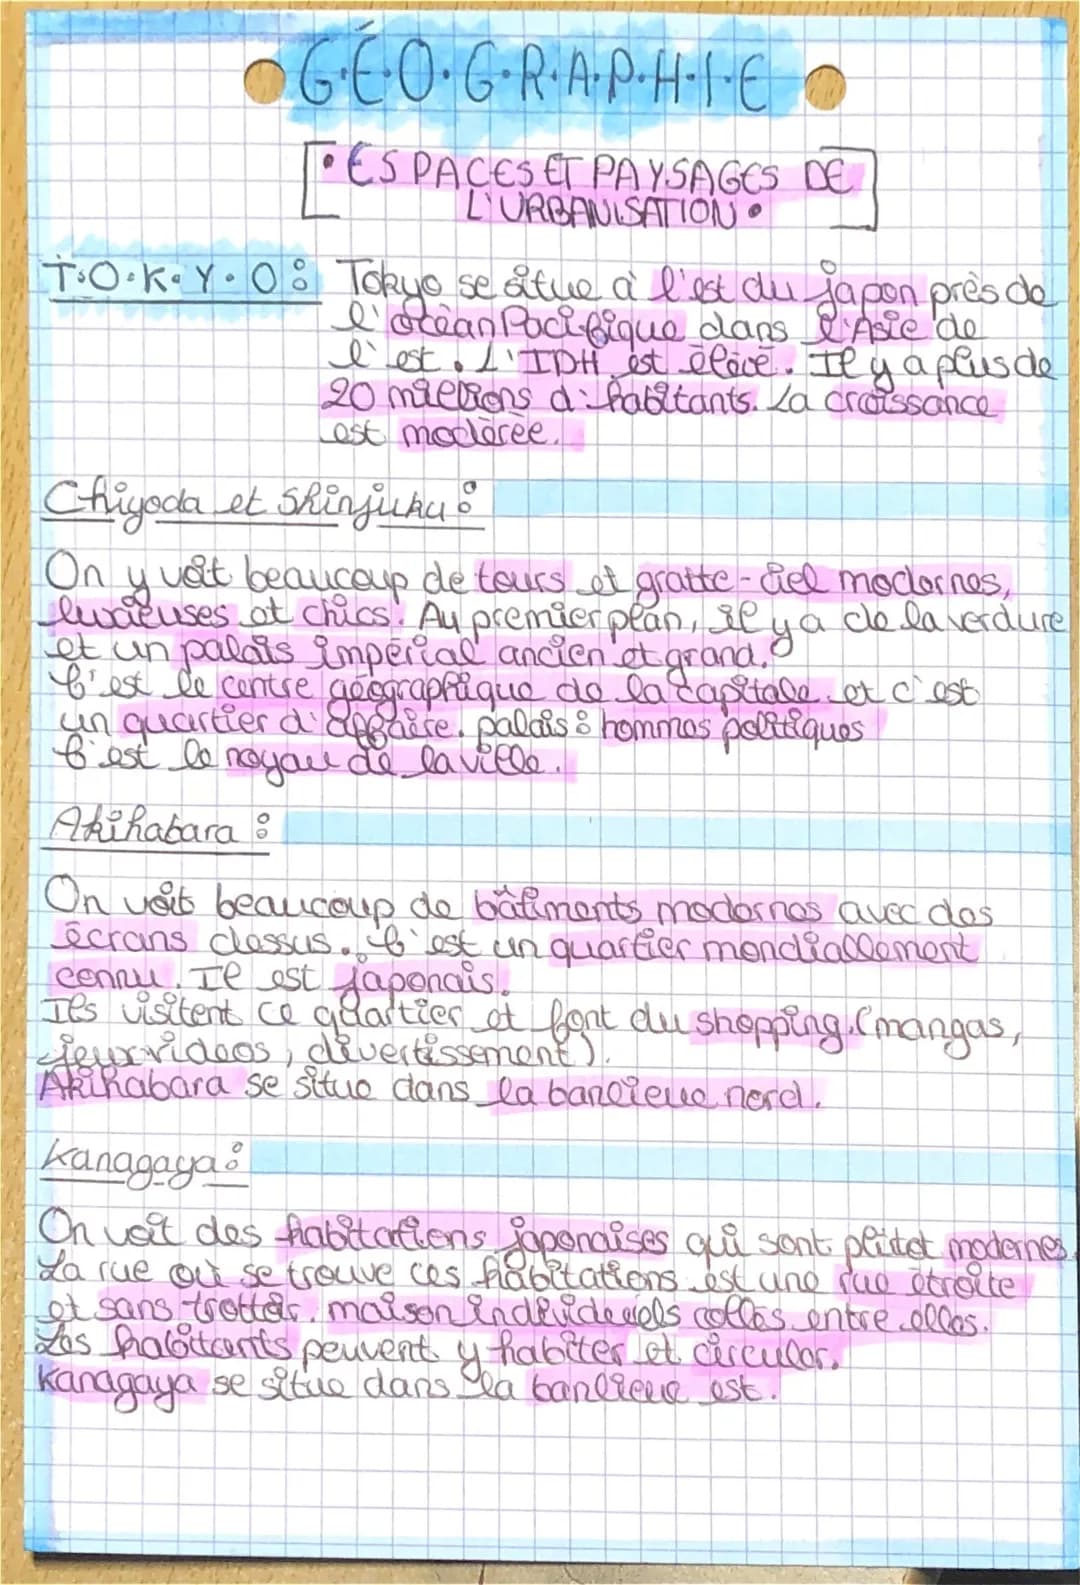 G.É.O.G.R.A.P.H.I.E
• ESPACES ET PAYSAGES DE
L'URBANISATION •
T.O.K.Y.O : Tokyo se situe à l'est du japon près de
l'océan Pacifique dans l'Asie de
l'est. L'IDH est élevé. Il y a plus de
20 millions d'habitants. La croissance
est modérée.
Chiyoda et Shinjuku :
On y voit beaucoup de tours et gratte-ciel modernes,
luxieuses et chics. Au premier plan, il y a de la verdure
et un palais impérial ancien et grand.
C'est le centre géographique de la capitale et c'est
un quartier d'affaire. palais : hommes politiques
C'est le noyau de la ville.
Akihabara :
On voit beaucoup de bâtiments modernes avec des
écrans dessus. C'est un quartier mondiallement
connu. Il est japonais.
Ils visitent ce quartier et font du shopping. (mangas,
jeux videos, divertissement).
Akihabara se situe dans la banlieue nord.
Kanagaya :
On voit des habitations japonaises qui sont plutot modernes.
La rue où se trouve ces habitations est une rue étroite
et sans trottoir. maison individuels colles entre elles.
Les habitants peuvent y habiter et circuler.
Kanagaya se situe dans la banlieue est.